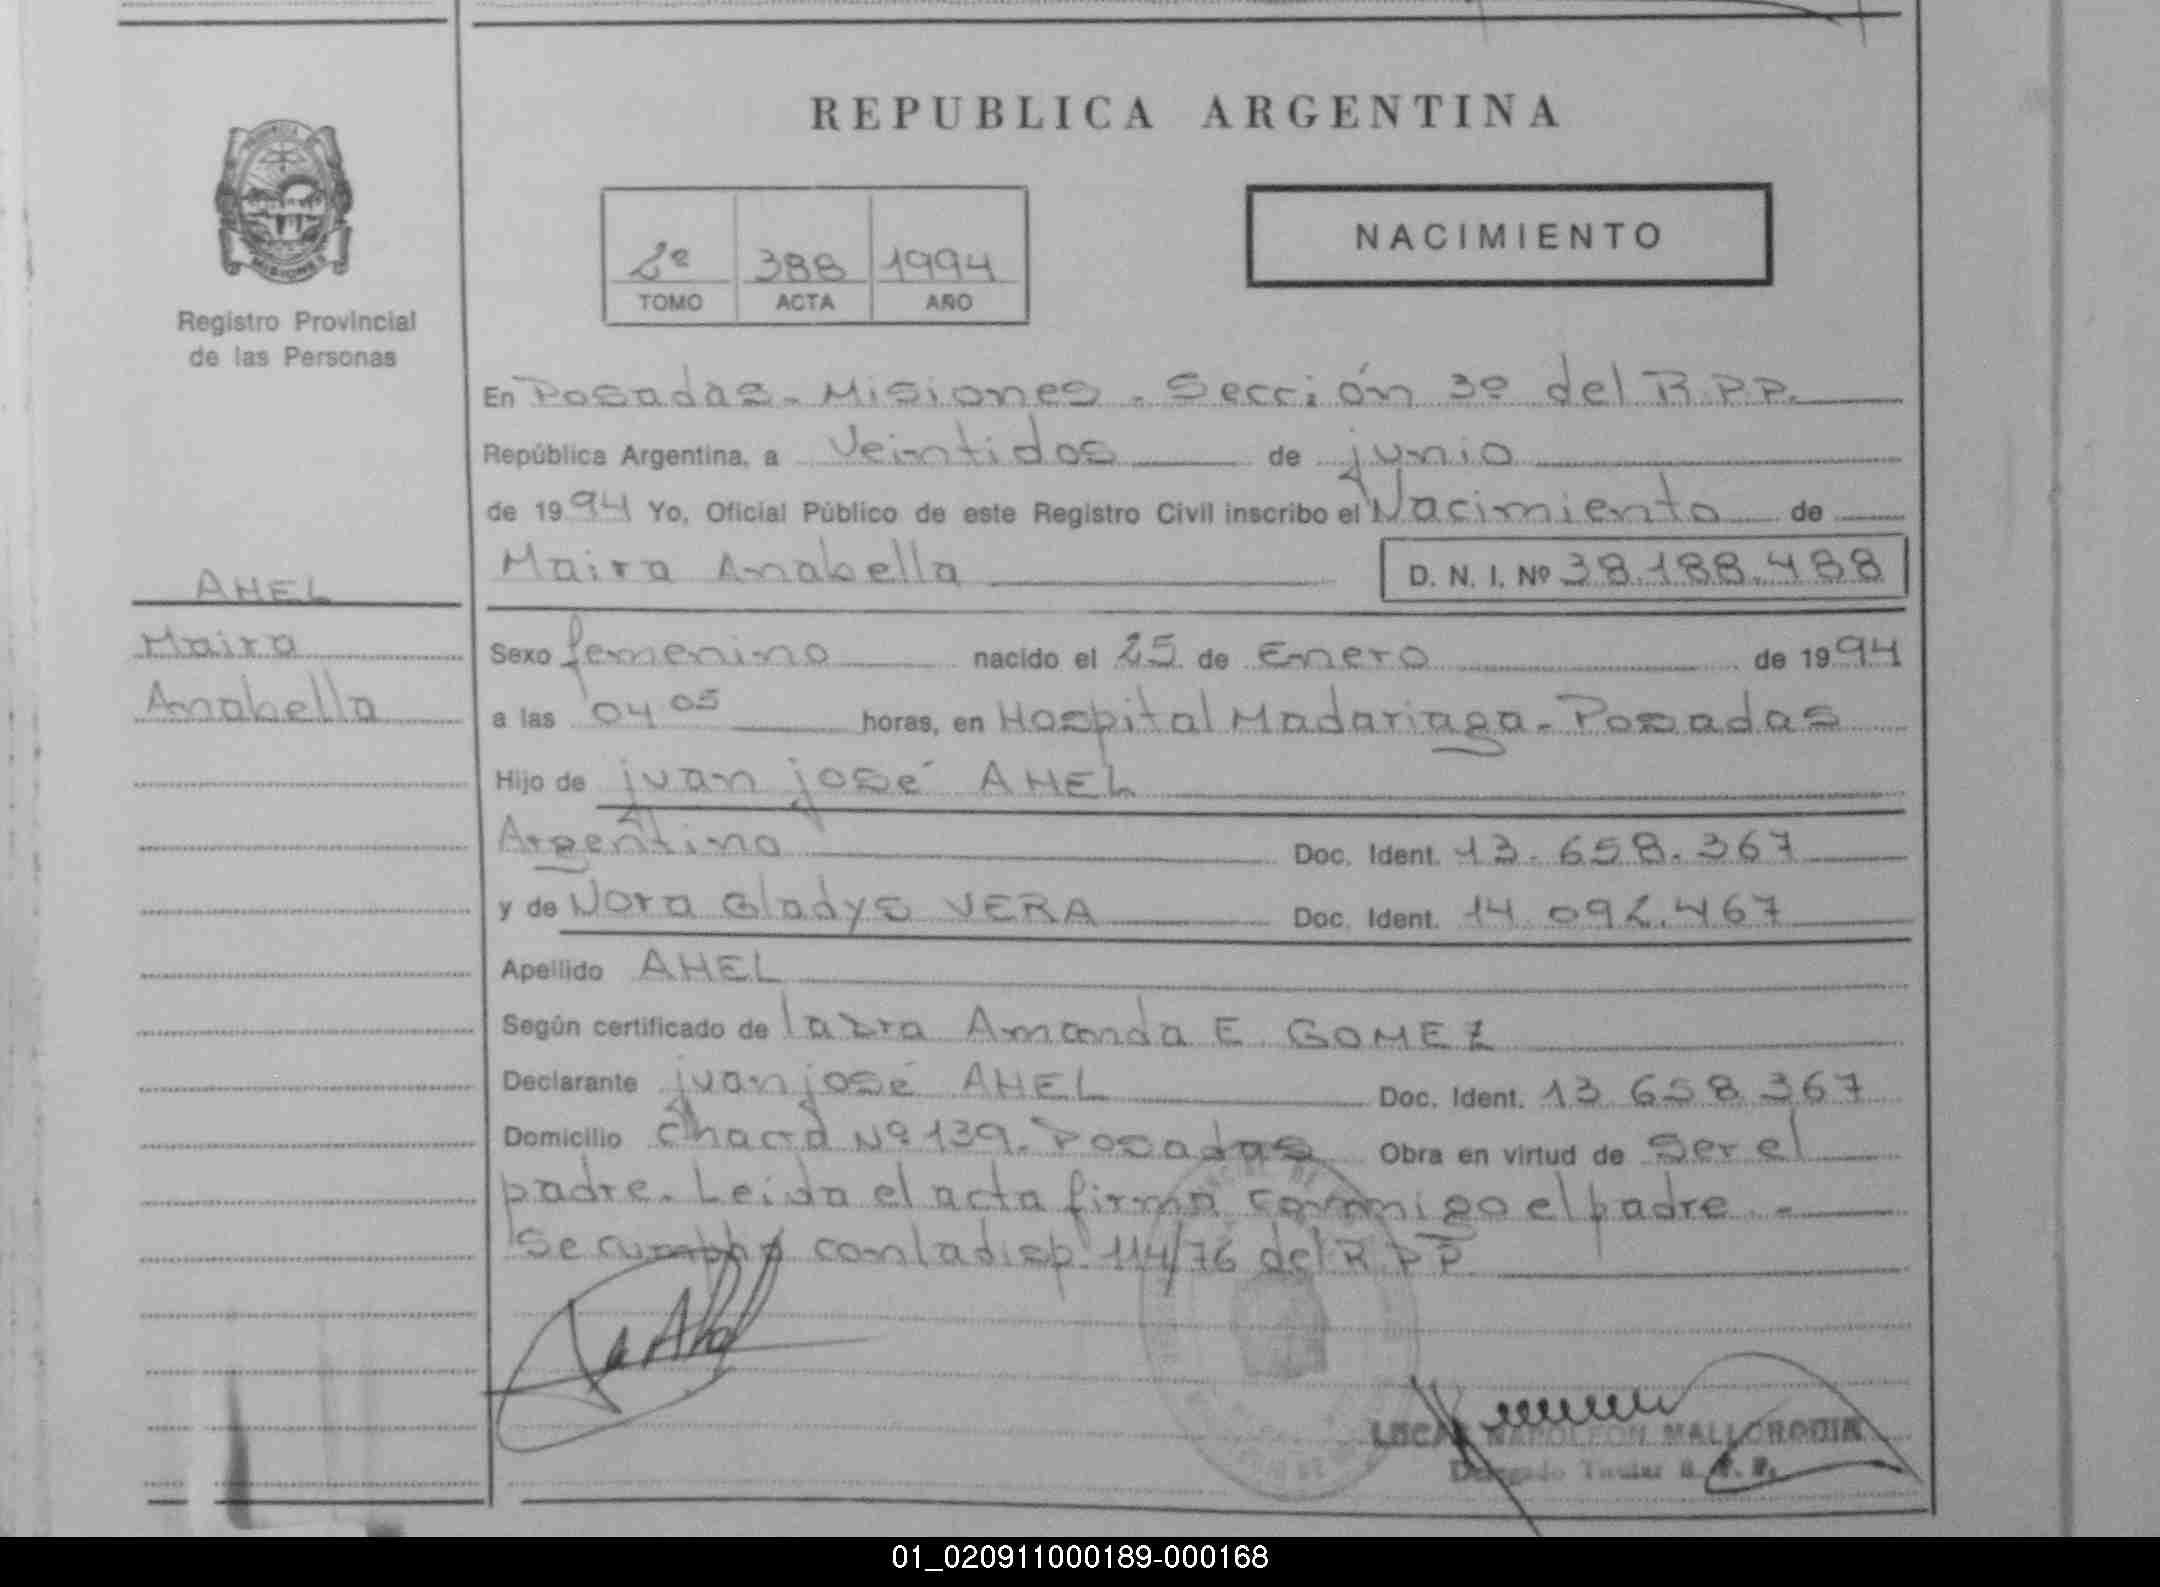 REPUBLICA ARGENTINA
NACIMIENTO
2º 388 1994
TOMO ACTA AÑO
MISIONES
Registro Provincial
de las Personas
En Posadas - Misiones - Sección 3º del R.P.P.
República Argentina, a Veintidos de junio
de 1994 Yo, Oficial Público de este Registro Civil inscribo el Nacimiento de
Maira Anabella D. N. I. Nº 38.188.488
AHEL
Maira
Anabella
Sexo femenino nacido el 25 de Enero de 1994
a las 04 05 horas, en Hospital Madariaga - Posadas
Hijo de juan josé AHEL
Argentino Doc. Ident. 13.658.367
y de Nora Gladys VERA Doc. Ident. 14.092.467
Apellido AHEL
Según certificado de la Dra Amanda E. GOMEZ
Declarante juan josé AHEL Doc. Ident. 13 658 367
Domicilio chacra Nº 139. Posadas Obra en virtud de ser el
padre. Leida el acta firma conmigo el padre. -
Se cumple con la disp. 114/76 del R.P.P
NAPOLEON
Delegado Titular R. P. P.
01_020911000189-000168